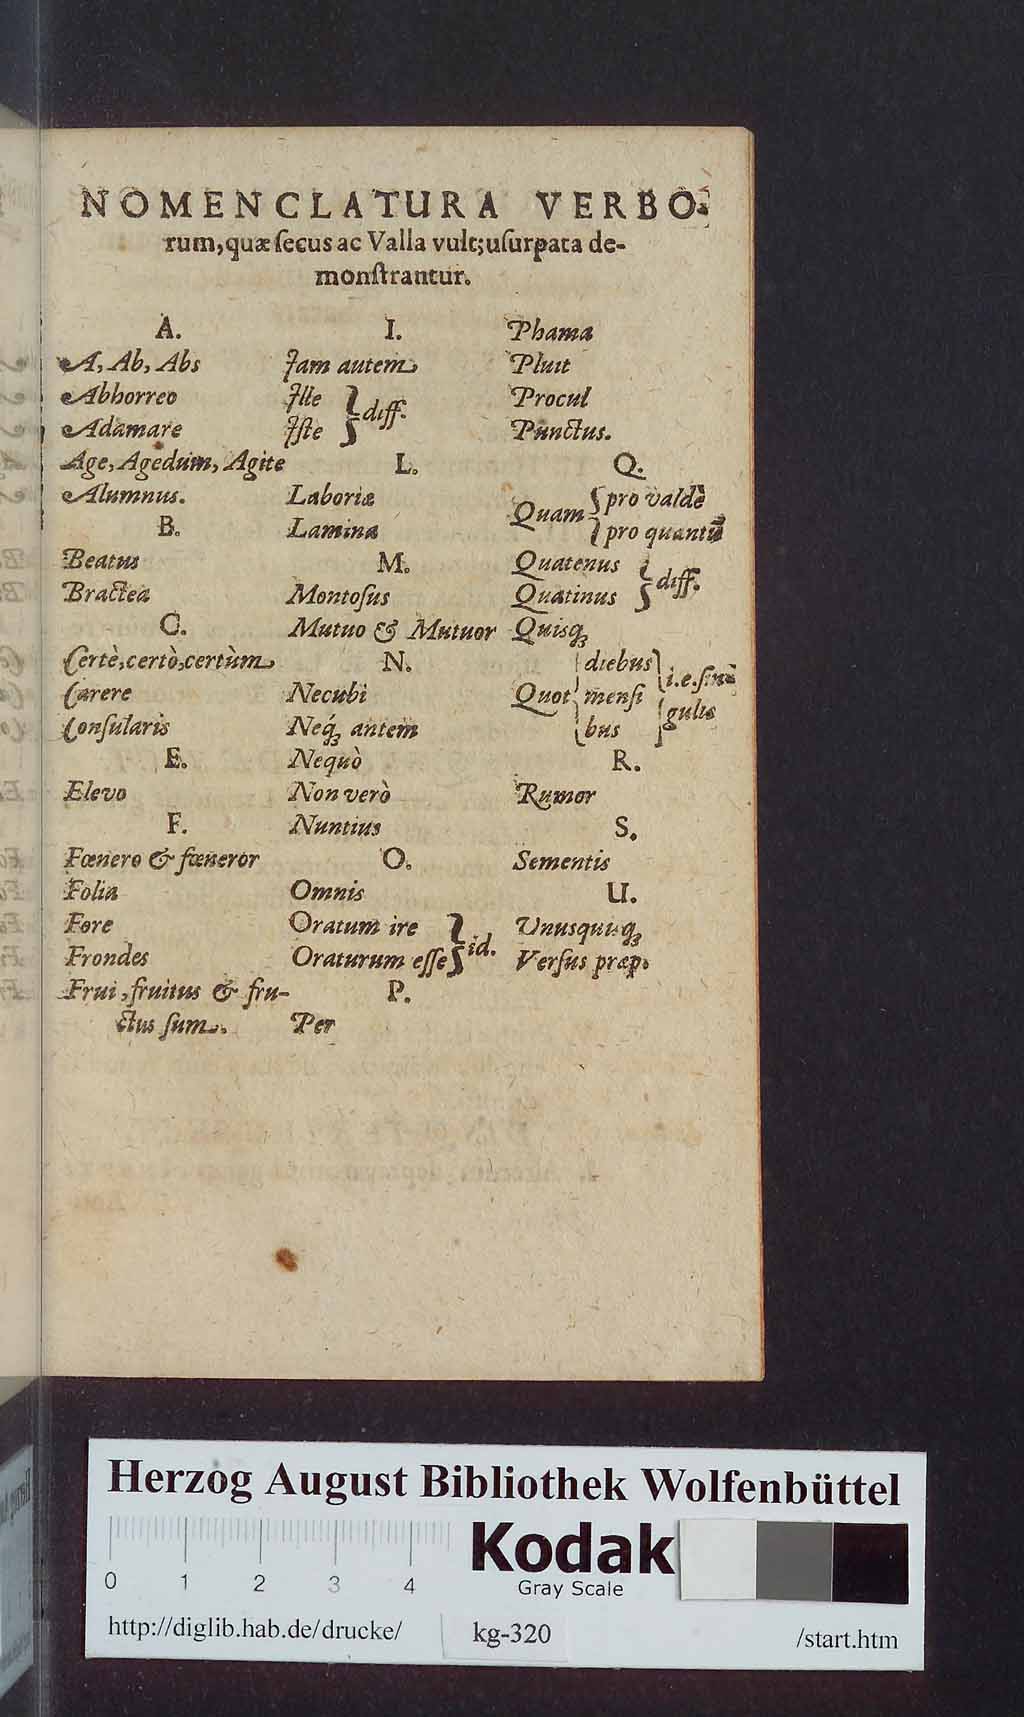 NOMENCLATURA VERBO-
rum, quæ ſecus ac Valla vult; uſurpata de-
monſtrantur.
A.
A, Ab, Abs
Abhorreo
Adamare
Age, Agedum, Agite
Alumnus.
B.
Beatus
Bractea
C.
Certè, certò, certùm
Carere
Conſularis
E.
Elevo
F.
Fœnero & fœneror
Folia
Fore
Frondes
Frui, fruitus & fru-
ctus ſum.
I.
Jam autem
Ille
Iſte } diff.
L.
Laboriæ
Lamina
M.
Montoſus
Mutuo & Mutuor
N.
Necubi
Neq́ꝫ antem
Nequò
Non verò
Nuntius
O.
Omnis
Oratum ire
Oraturum eſſe } id.
P.
Per
Phama
Pluit
Procul
Punctus.
Q.
Quam { pro valdè
pro quantū
Quatenus
Quatinus } diff.
Quisqꝫ
Quot { diebus
menſi
bus } i.e. ſin
gulis
R.
Rumor
S.
Sementis
U.
Unusquiſqꝫ
Verſus præp.
Herzog August Bibliothek Wolfenbüttel
0 1 2 3 4
Kodak
Gray Scale
http://diglib.hab.de/drucke/ kg-320 /start.htm